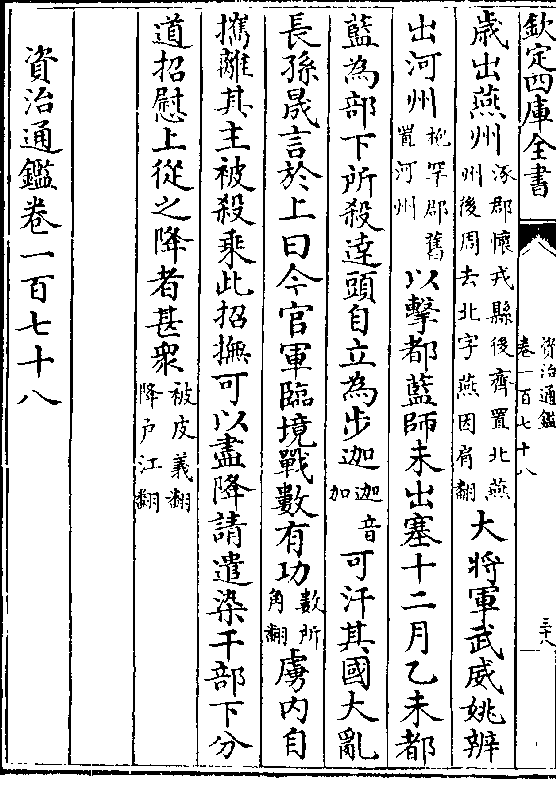 欽定四庫全書
資治通鑑
卷一百七十八
三十八
歳出燕州涿郡懷戎縣後齊置北燕州後周去北字燕因肩翻大將軍武威姚辨
出河州枹罕郡舊置河州以擊都藍師未出塞十二月乙未都
藍為部下所殺達頭自立為步迦迦音加可汗其國大亂
長孫晟言於上曰今官軍臨境戰數有功數所角翻虜内自
攜離其主被殺乘此招撫可以盡降請遣染干部下分
道招慰上從之降者甚衆被皮義翻降戶江翻
資治通鑑卷一百七十八